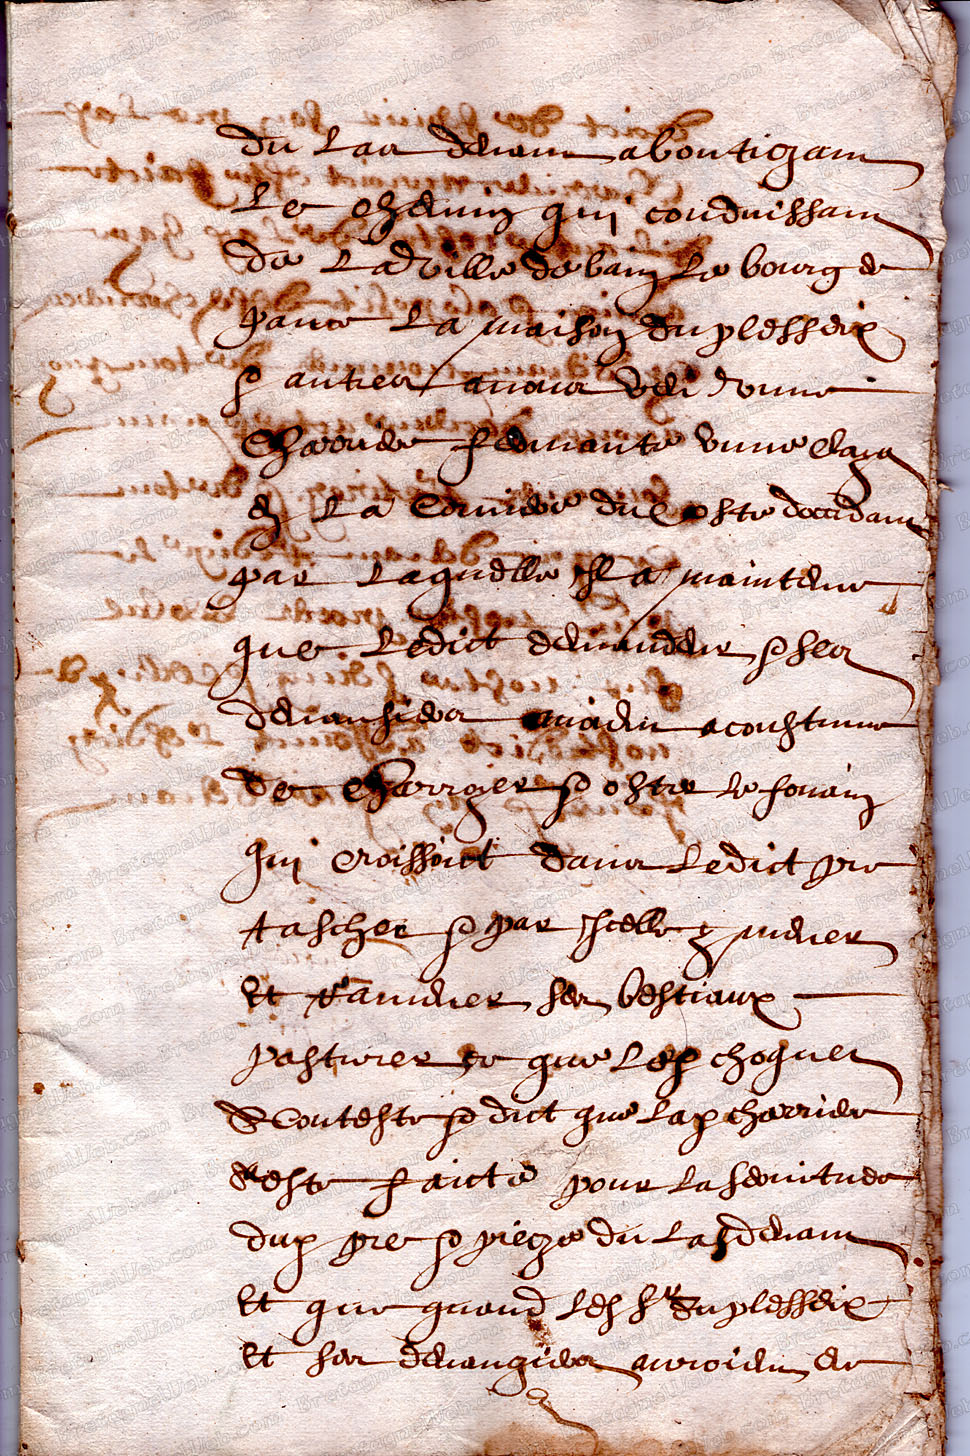 du Lac devant aboutizant
Le chemin qui conduissant
de La ville de bain Le bourg de
pance La maison du plesseix
& autres avoir veu d'une
Charriere fermante d'une claye
en La Corniere du Coste doccidant
par Laquelle Il a maintenu
que Ledict demandeur & ses
devansiers avoint acoustume
de Charroyer & oster Le fouain
qui croissoict dans Ledict pre
fascher & par Icelle y mener
Et ramener ses bestiaux
pasturer ce que Led choquer
Conteste & dict que Lad charriere
este faicte pour La servitude
dud pre & piecze du Lac devant
Et que quand Led sr du plesseix
Et ses devangiers auroient de